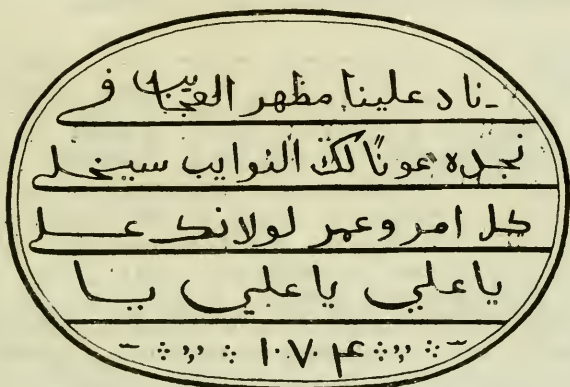 ناد علينا مظهر العجايب في
نجده عونا لك النوايب سينجلي
كل امر وعمر لولانك علي
يا علي يا علي يا
١٠٧۴